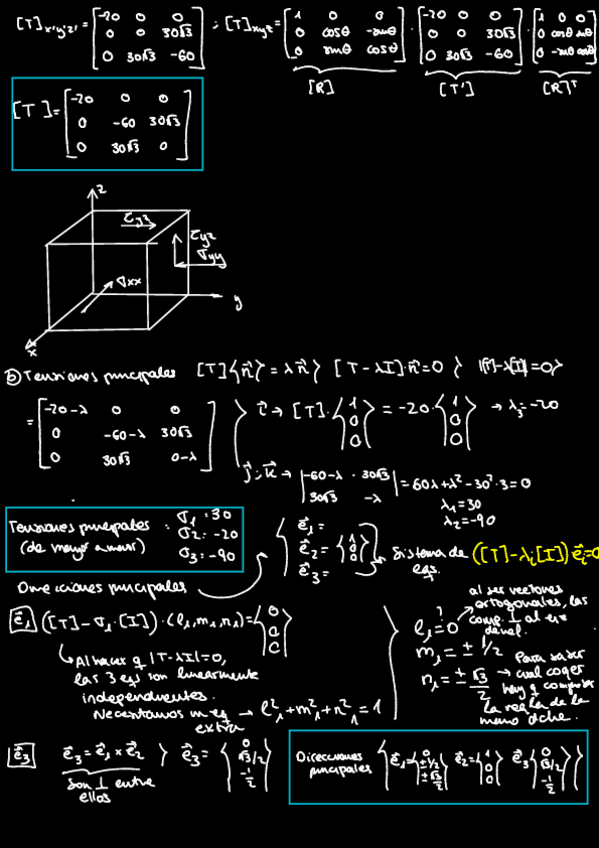 [T]x'y'z' = [-20 0 0; 0 0 30√3; 0 30√3 -60] ; [T]xyz = [1 0 0; 0 cosθ -senθ; 0 senθ cosθ] · [-20 0 0; 0 0 30√3; 0 30√3 -60] · [1 0 0; 0 cosθ senθ; 0 -senθ cosθ]
[R] [T'] [R]ᵀ
[T] = [-20 0 0; 0 -60 30√3; 0 30√3 0]
z
τyz
τyz
σyy
σxx
y
x
b) Tensiones principales [T]{n⃗} = λn⃗} [T-λI]·n⃗=0 } |[T]-λ[I]|=0}
= [-20-λ 0 0; 0 -60-λ 30√3; 0 30√3 0-λ] } i⃗ → [T]·{1 0 0} = -20·{1 0 0} → λ₃=-20
j⃗; k⃗ → |-60-λ · 30√3; 30√3 -λ| = 60λ+λ²-30²·3=0
λ₁=30
λ₂=-90
Tensiones principales : σ1 = 30
(de mayor a menor) σ2 = -20
σ3 = -90
{ e⃗₁=
e⃗₂= {1 0 0}
e⃗₃=
Sistema de ecs. ([T]-λi[I]) e⃗i=0
Direcciones principales
e⃗₁ ([T]-σ₁·[I])·(l₁,m₁,n₁)={0 0 0}
↳ Al hacer q |T-λI|=0,
las 3 eqs son linearmente
independientes.
Necesitamos una eq extra → l₁²+m₁²+n₁²=1
l₁=0
al ser vectores
ortogonales, las
comp. ⊥ al eje
m₁=± 1/2
n₁=± √3/2
Para saber
cual coger
hay q comprobar
la regla de la
mano dcha.
e⃗₃ e⃗₃=e⃗₁×e⃗₂ } e⃗₃= {0 √3/2 -1/2}
son ⊥ entre
ellos
Direcciones principales { e⃗₁={0 ±1/2 ±√3/2} e⃗₂={1 0 0} e⃗₃{0 √3/2 -1/2} }